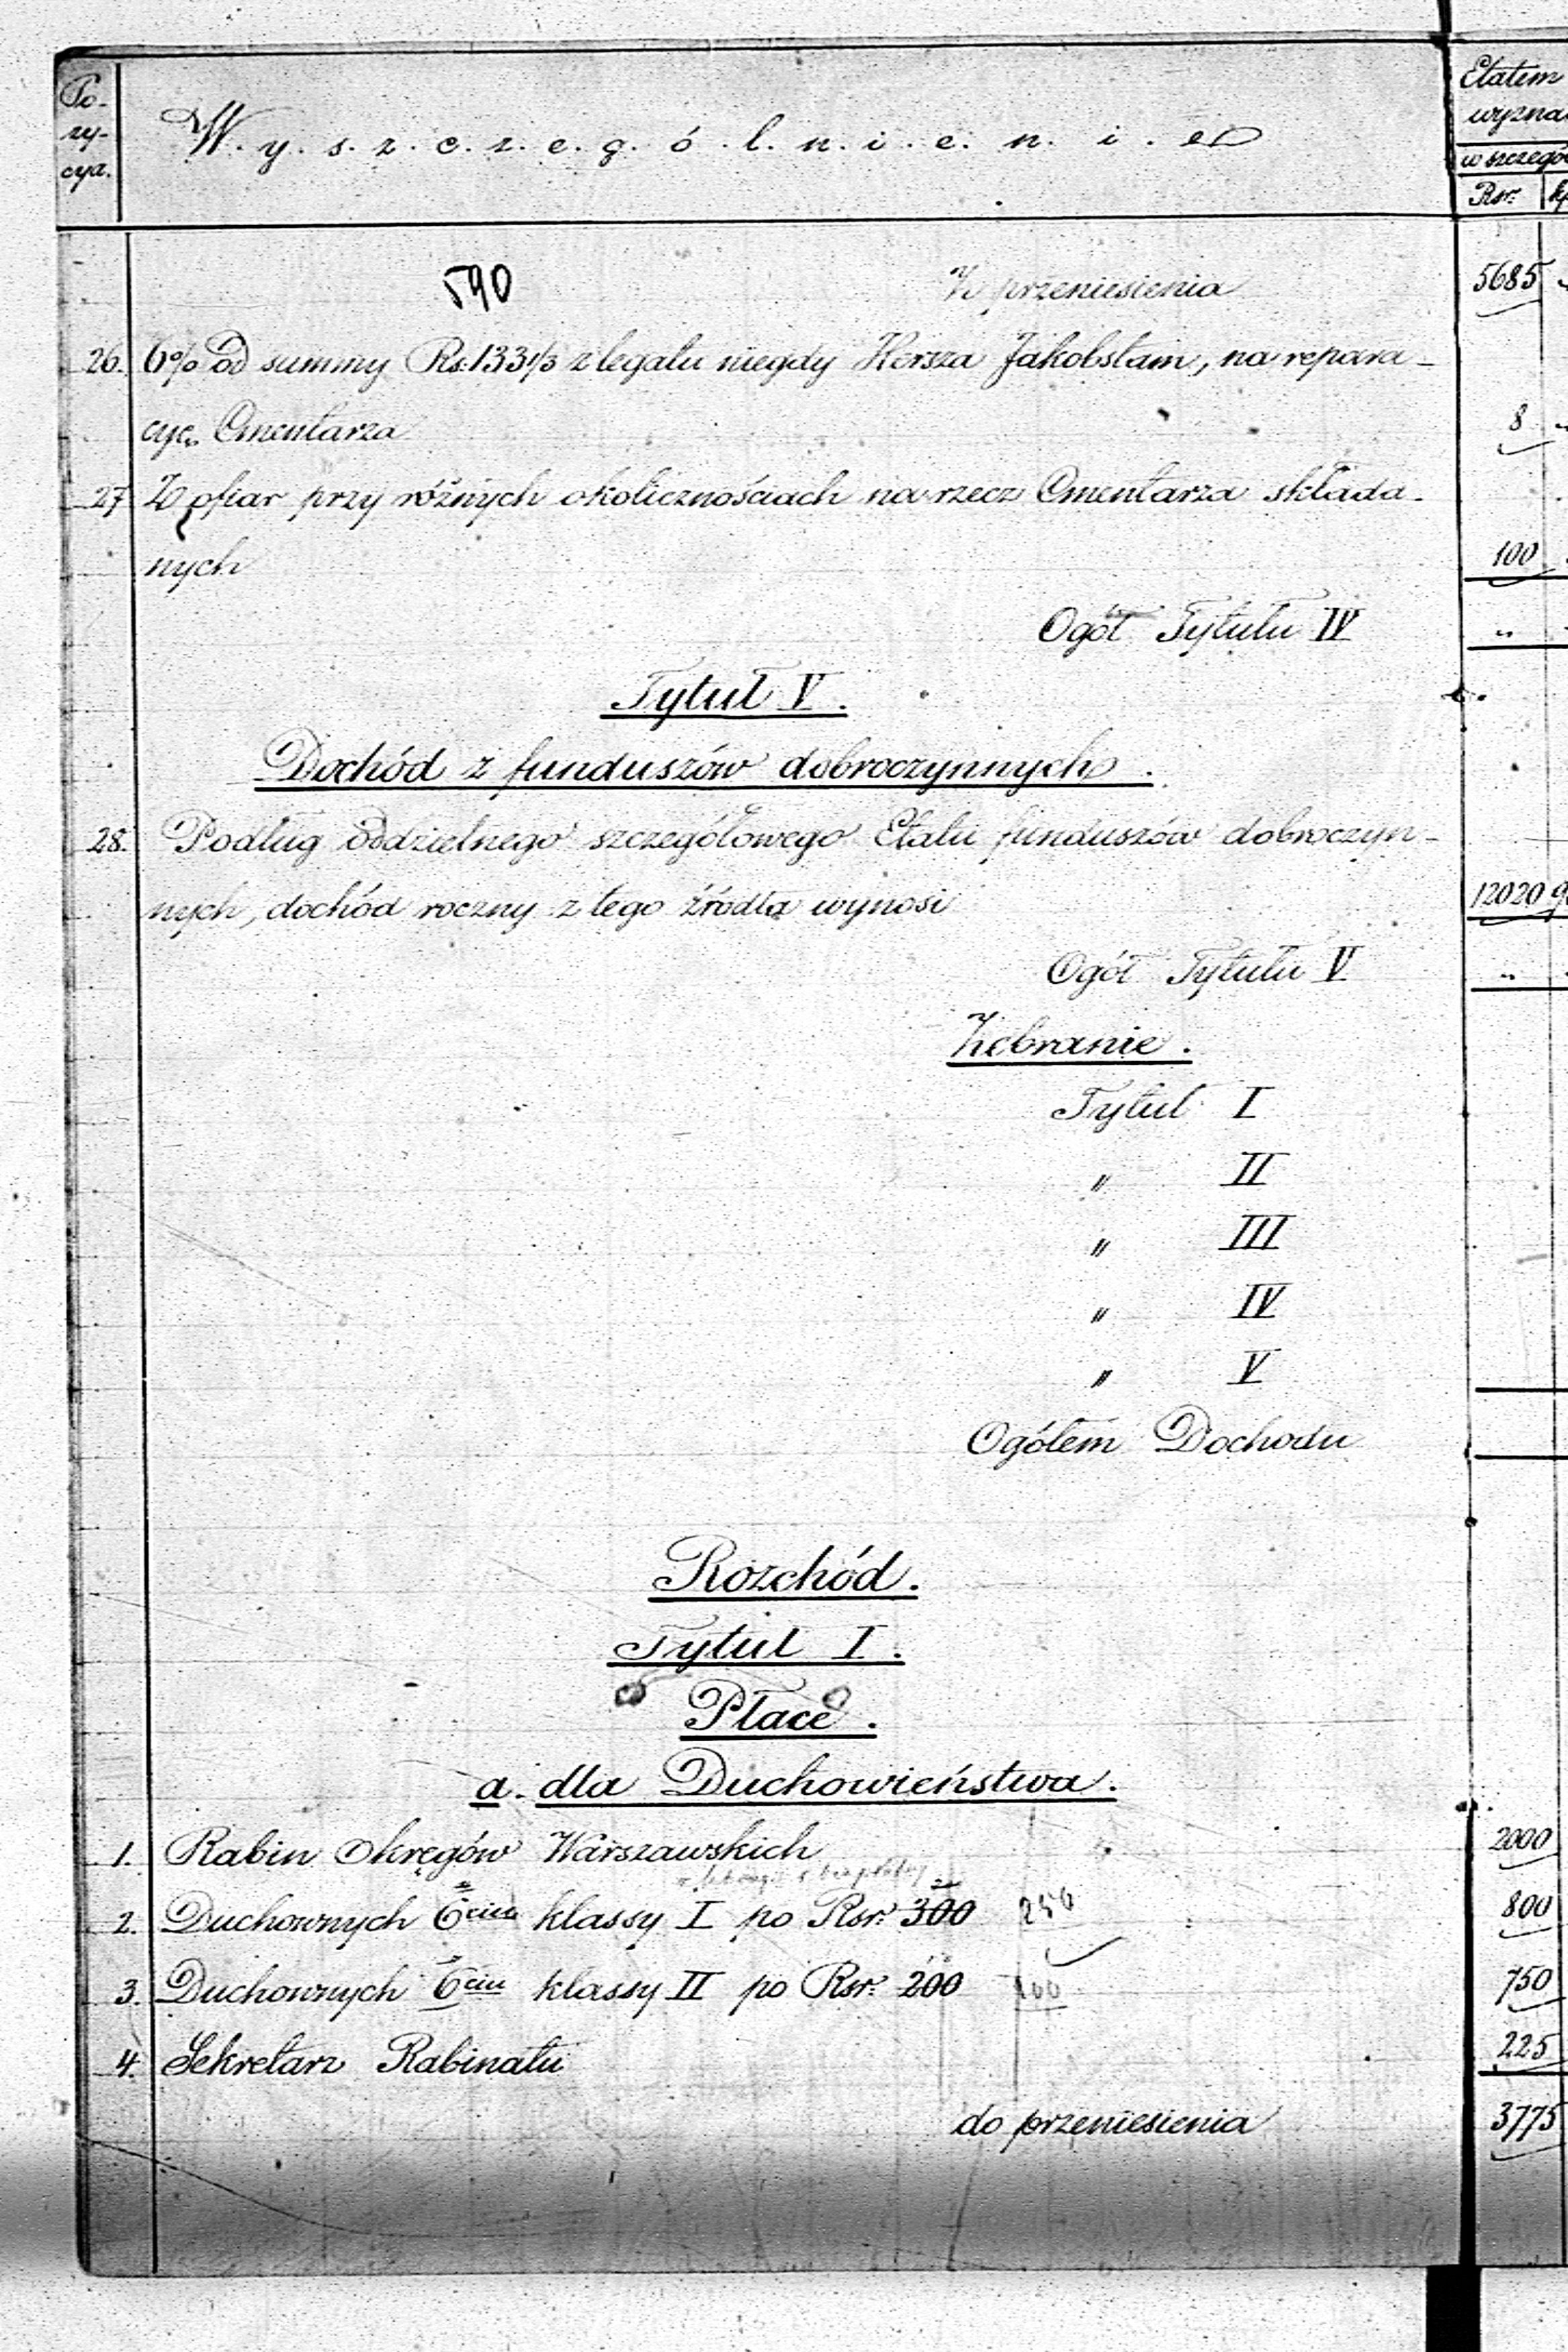 Po-
zy-
cya.
W.y.s.z.c.z.e.g.ó.l.n.i.e.n.i.e
Etatem
wyzna
w szczegó
Rsr.
590 Z przeniesienia 5685
26. 6% od summy Rs. 133 1/3 z legatu niegdy Hersza Jakobstam, na repara-
cyę Cmentarza 8
27 Z ofiar przy różnych okolicznościach na rzecz Cmentarza składa-
nych 100
Ogół Tytułu IV "
Tytuł V.
Dochód z funduszów dobroczynnych.
28. Podług oddzielnego szczegółowego Etatu funduszów dobroczyn-
nych, dochód roczny z tego źródła wynosi 12020
Ogół Tytułu V "
Zebranie.
Tytuł I
" II
" III
" IV
" V
Ogółem Dochodu
Rozchód.
Tytuł I.
Płace.
a. dla Duchowieństwa.
1. Rabin Okręgów Warszawskich 2000
2. Duchownych 6ciu klassy I po Rsr. 300 250 800
3. Duchownych 6ciu klassy II po Rsr. 200 750
4. Sekretarz Rabinatu 225
do przeniesienia 3775